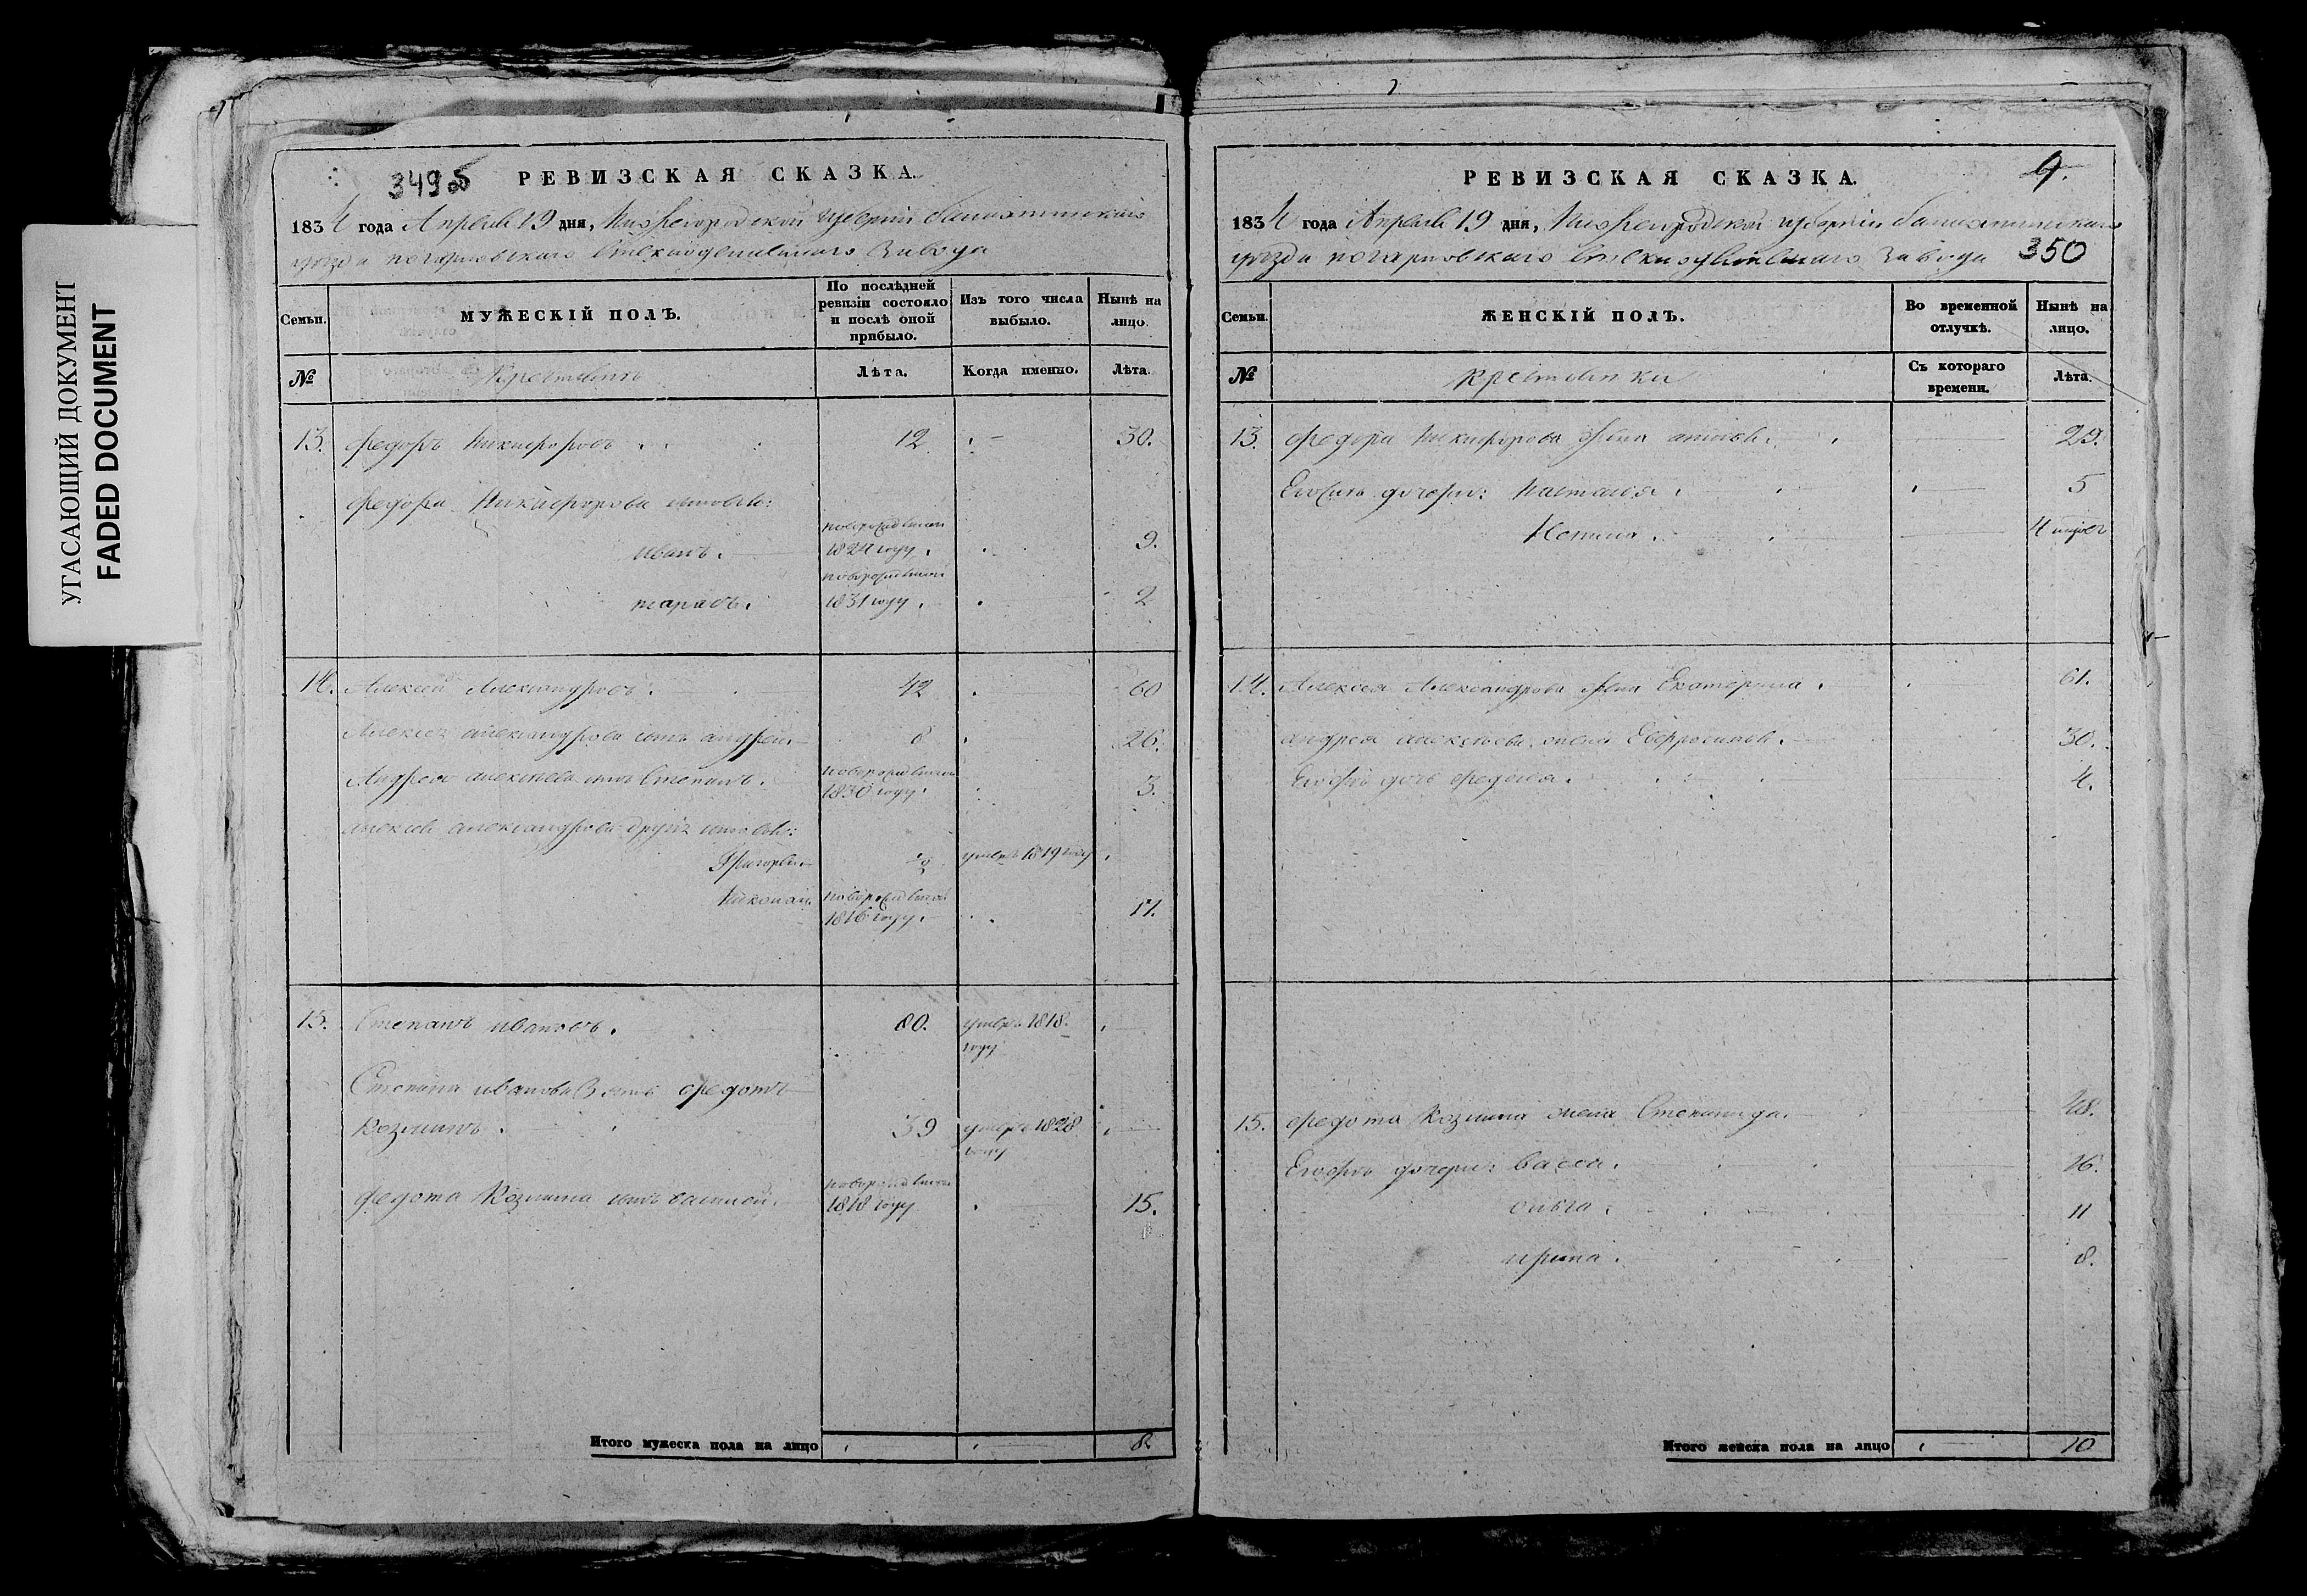 УГАСАЮЩИЙ ДОКУМЕНТ
FADED DOCUMENT
349 об
РЕВИЗСКАЯ СКАЗКА.
1834 года Апреля 19 дня, Нижегородской губернии Балахнинскаго
уезда Стеклоделательнаго завода
Семьи.
МУЖЕСКІЙ ПОЛЪ.
По послѣдней ревизіи состояло и послѣ оной прибыло.
Изъ того числа выбыло.
Нынѣ на лицо.
№
Крестьянъ
Лѣта.
Когда именно.
Лѣта.
13. Федоръ Никифоровъ. 12 30.
Федора Никифорова сыновья:
новорожденной
Иванъ. 1824 году. 9.
новорожденной
Тарасъ. 1831 году. 2
14. Алексей Александровъ. 42 60
Алексея Александрова сынъ Андрей. 8 26.
Андрея Алексеева сынъ Степанъ. новорожденной
1830 году. 3.
Алексея Александрова другіе сыновья:
Григорей умеръ 1819 году
Николай новорожденной
1816 году. 17.
15. Степанъ Ивановъ. 80. умеръ 1818
году
Степана Иванова зять Федотъ
Козминъ. 39 умеръ 1828
году
Федота Козмина сынъ новорожденной
1818 году 15.
Итого мужеска пола на лицо 8.
9.
РЕВИЗСКАЯ СКАЗКА.
1834 года Апреля 19 дня, Нижегородской губерніи Балахнинскаго
уезда Стеклоделательнаго завода 350
Семьи.
ЖЕНСКІЙ ПОЛЪ.
Во временной отлучкѣ.
Нынѣ на лицо.
№
Крестьянки
Съ котораго времени.
Лѣта.
13. Федора Никифорова жена 29.
Его дочери: Наталья. 5
4 
14. Алексея Александрова жена Екатерина. 61.
Андрея Алексеева жена Евфросинья. 30.
Его дочь Федосья. 4.
15. Федота Козмина жена Степанида. 48.
Его дочери: Васса. 16.
Ольга. 11
Ирина. 8.
Итого женска пола на лицо 10